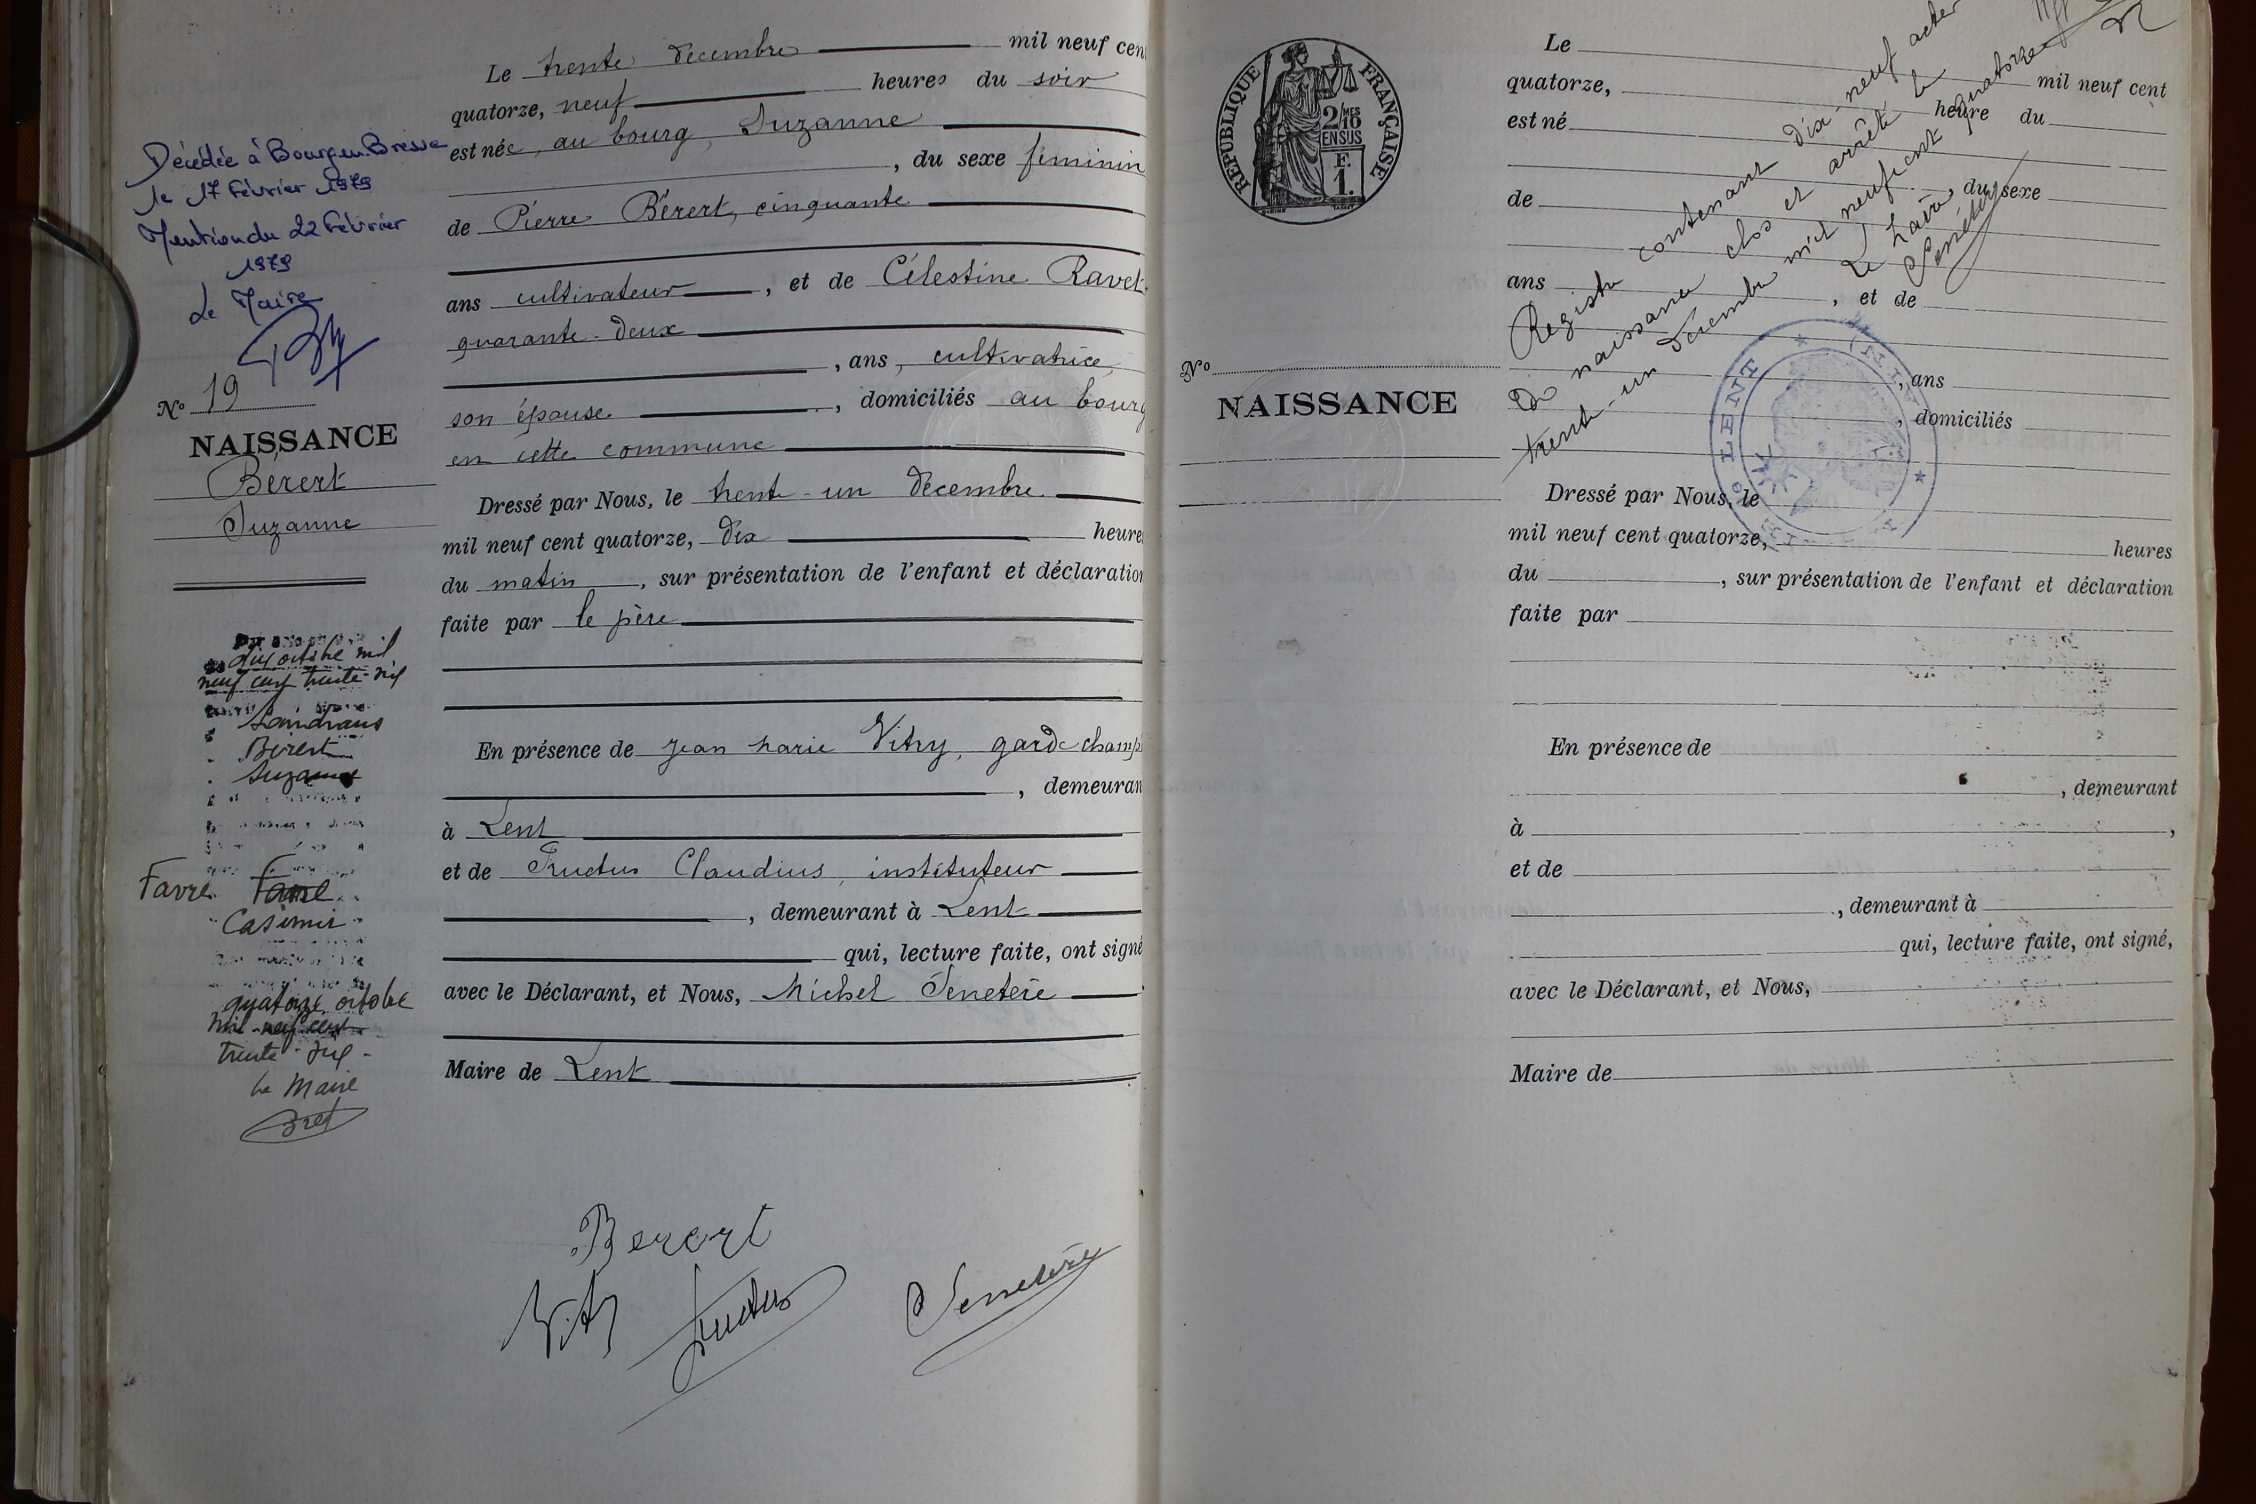 Décédée à Bourg en Bresse
le 17 Février 1979
Mention du 22 Février
1979
Le Maire
N° 19
NAISSANCE
Bérert
Suzanne
dix octobre mil
neuf cent trente-six
Sandrans
Berert
Suzanne
Favre Favre
Casimir
quatorze octobre
mil neuf cent
trente-six -
Le Maire
Le trente décembre mil neuf cent
quatorze, neuf heures du soir
est née, au bourg, Suzanne
, du sexe féminin
de Pierre Bérert, cinquante
ans cultivateur, et de Célestine Ravet
quarante-deux
, ans, cultivatrice,
son épouse, domiciliés au bourg
en cette commune
Dressé par Nous, le trente-un décembre
mil neuf cent quatorze, dix heures
du matin, sur présentation de l'enfant et déclaration
faite par le père
En présence de Jean Marie Vitry, garde champ
, demeuran
à Lent
et de Fructus Claudius, instituteur
, demeurant à Lent
qui, lecture faite, ont signé
avec le Déclarant, et Nous, Michel Sénetère
Maire de Lent
Berert
Vitry Fructus Senetère
RÉPUBLIQUE FRANÇAISE
2/10 MES
EN SUS
F.
1.
N°
NAISSANCE
Le
mil neuf cent
quatorze, heure du
est né
, du sexe
de
ans , et de
, ans
, domiciliés
Dressé par Nous, le
mil neuf cent quatorze, heures
du , sur présentation de l'enfant et déclaration
faite par
En présence de
, demeurant
à ,
et de
, demeurant à
qui, lecture faite, ont signé,
avec le Déclarant, et Nous,
Maire de
Registre contenant dix-neuf actes
de naissance clos et arrêté le
trente-un décembre mil neuf cent quatorze
Le Maire,
Senetère
LENT (AIN)